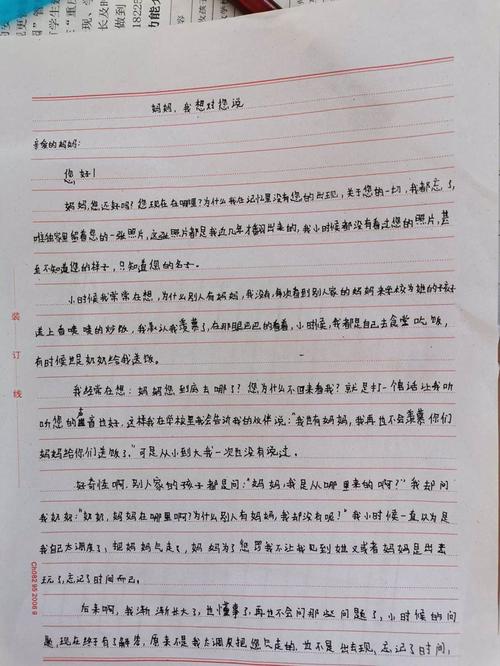 学生
管
"重庆
现、学
长及时
做到
18225
功能
女孩子
妈妈，我想对您说
亲爱的妈妈：
您好！
妈妈，您还好吗？您现在在哪里？为什么我在记忆里没有您的出现，关于您的一切，我都忘了，
唯独家里留着您的一张照片，这张照片都是我近几年才翻出来的，我小时候都没有看过您的照片，甚
至不知道您的样子，只知道您的名字。
小时候我常常在想，为什么别人有妈妈，我没有，每次看到别人家的妈妈来学校为她的孩子
送上香喷喷的炒饭，我承认我羡慕了，在那眼巴巴的看着，小时候，我都是自己去食堂吃饭，
有时候也是奶奶给我送饭。
我经常在想：妈妈您到底去哪了？您为什么不回来看我？就是打一个电话让我听
听您的声音也好，这样我在学校里我会告诉我的伙伴说："我也有妈妈，我再也不会羡慕你们
妈妈给你们送饭了。"可是从小到大我一次也没有说过。
好奇怪啊，别人家的孩子都是问："妈妈，我是从哪里来的啊？"我却问
我奶奶："奶奶，妈妈在哪里啊？为什么别人有妈妈，我却没有呢？"我小时候一直以为是
我自己太调皮了，把妈妈气走了，妈妈为了惩罚我不让我见到她又或者妈妈是出去
玩了，忘记了时间而已。
后来啊，我渐渐长大了，也懂事了，再也不会问那些问题了，小时候的问
题，现在终于有了解答，原来不是我太调皮把您气走的，也不是出去玩，忘记了时间，
装
订
线